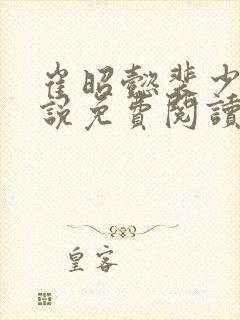 崔昭懿裴少
說免費閱讀
皇客